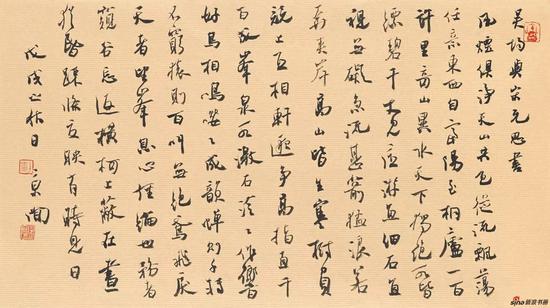 吴均與宋元思書
風煙俱淨天山共色從流飄蕩
任意東西自富陽至桐廬一百
許里奇山異水天下獨絕水皆
縹碧千丈見底游魚細石直
視無礙急湍甚箭猛浪若
奔夾岸高山皆生寒樹負
競上互相軒邈争高指直千
百成峯泉水激石泠泠作響
好鳥相鳴嚶嚶成韻蟬則千轉
不窮猿則百叫無絕鳶飛戾
天者望峯息心經綸世務者
窺谷忘返橫柯上蔽在晝
猶昏疎條交映有時見日
戊戌之秋日
sina 新浪书画